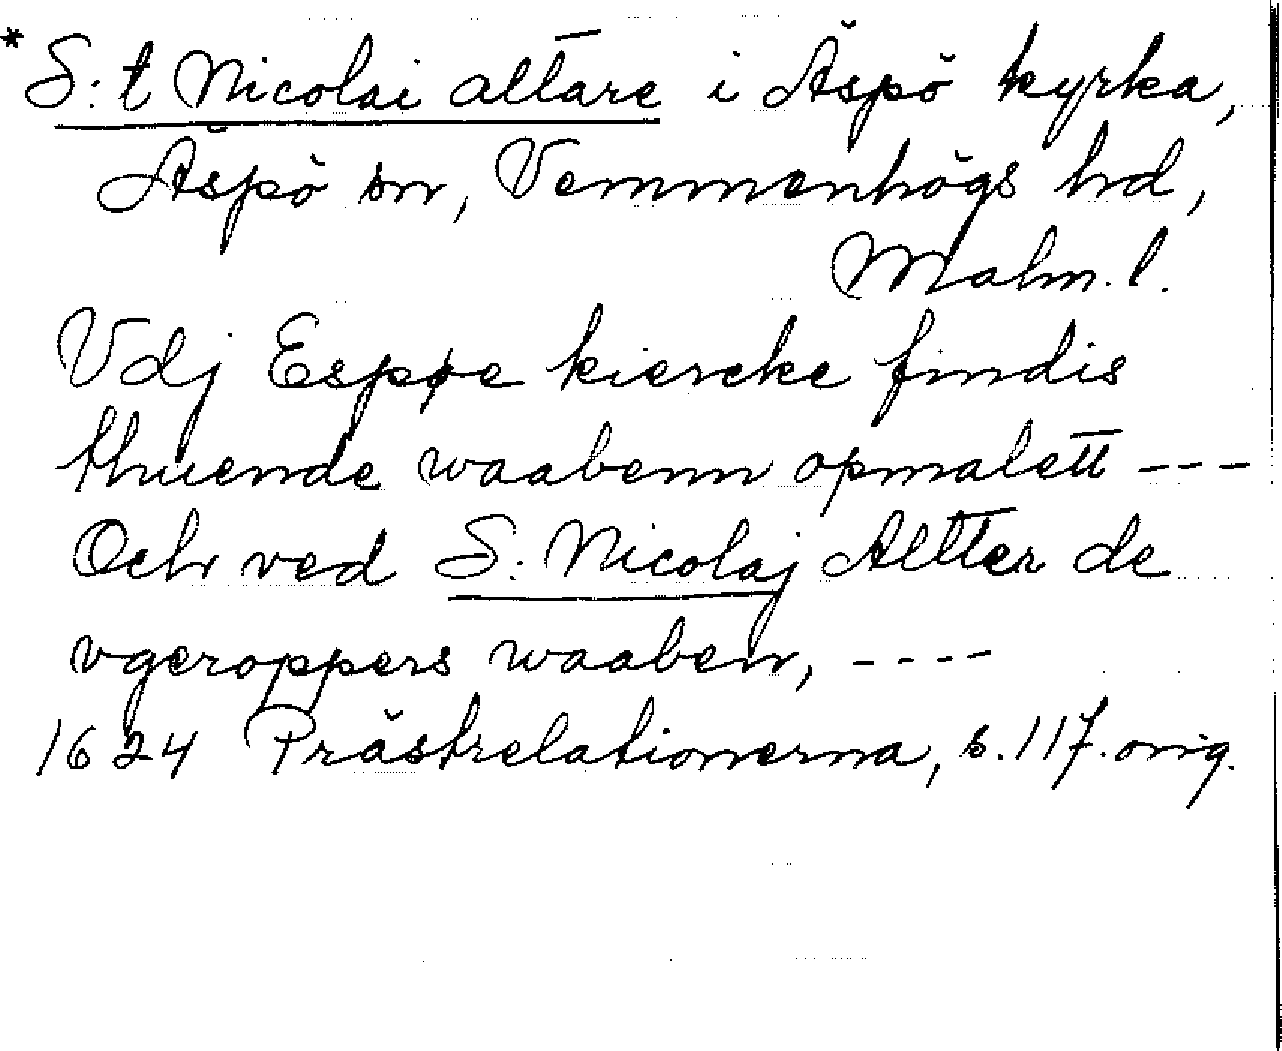 * S:t Nicolai altare i Äspö kyrka,
Äspö sn, Vemmenhögs hd,
Malm. l.
Vdj Espøe kiercke findis
thuende waabenn opmalett ---
Och ved S: Nicolaj Altter de
vgeroppers waaben, ----
1624 Prästrelationerna, s. 117. orig.